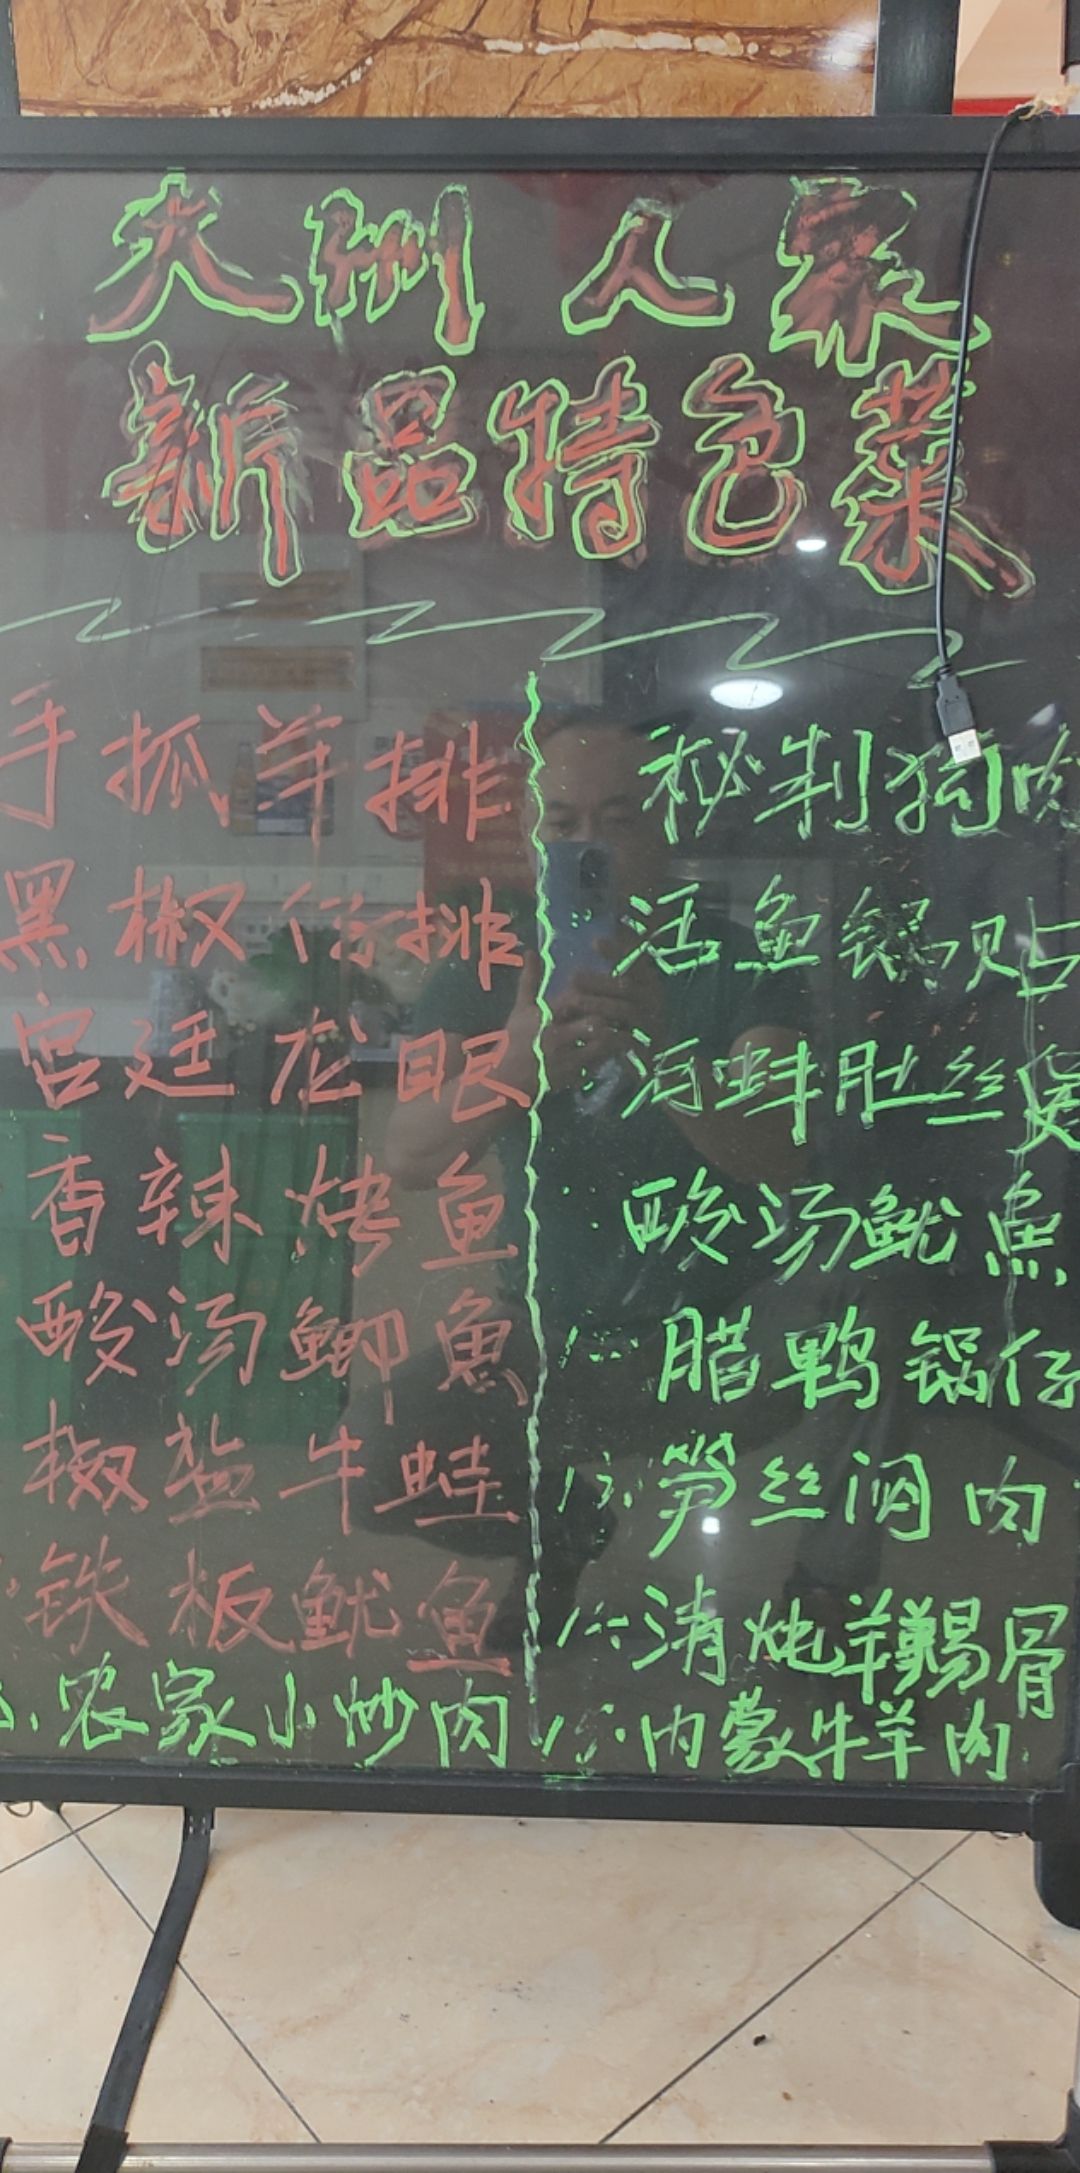 大洲人家
新品特色菜
手抓羊排
黑椒仔排
宫廷龙眼
香辣烤鱼
酸汤鲫魚
椒盐牛蛙
铁板鱿鱼
农家小炒肉
秘制狗肉
活鱼锅贴
河蚌肚丝煲
酸汤鱿魚
腊鸭锅仔
13.笋丝焖肉
14.清炖羊蝎骨
15.内蒙牛羊肉